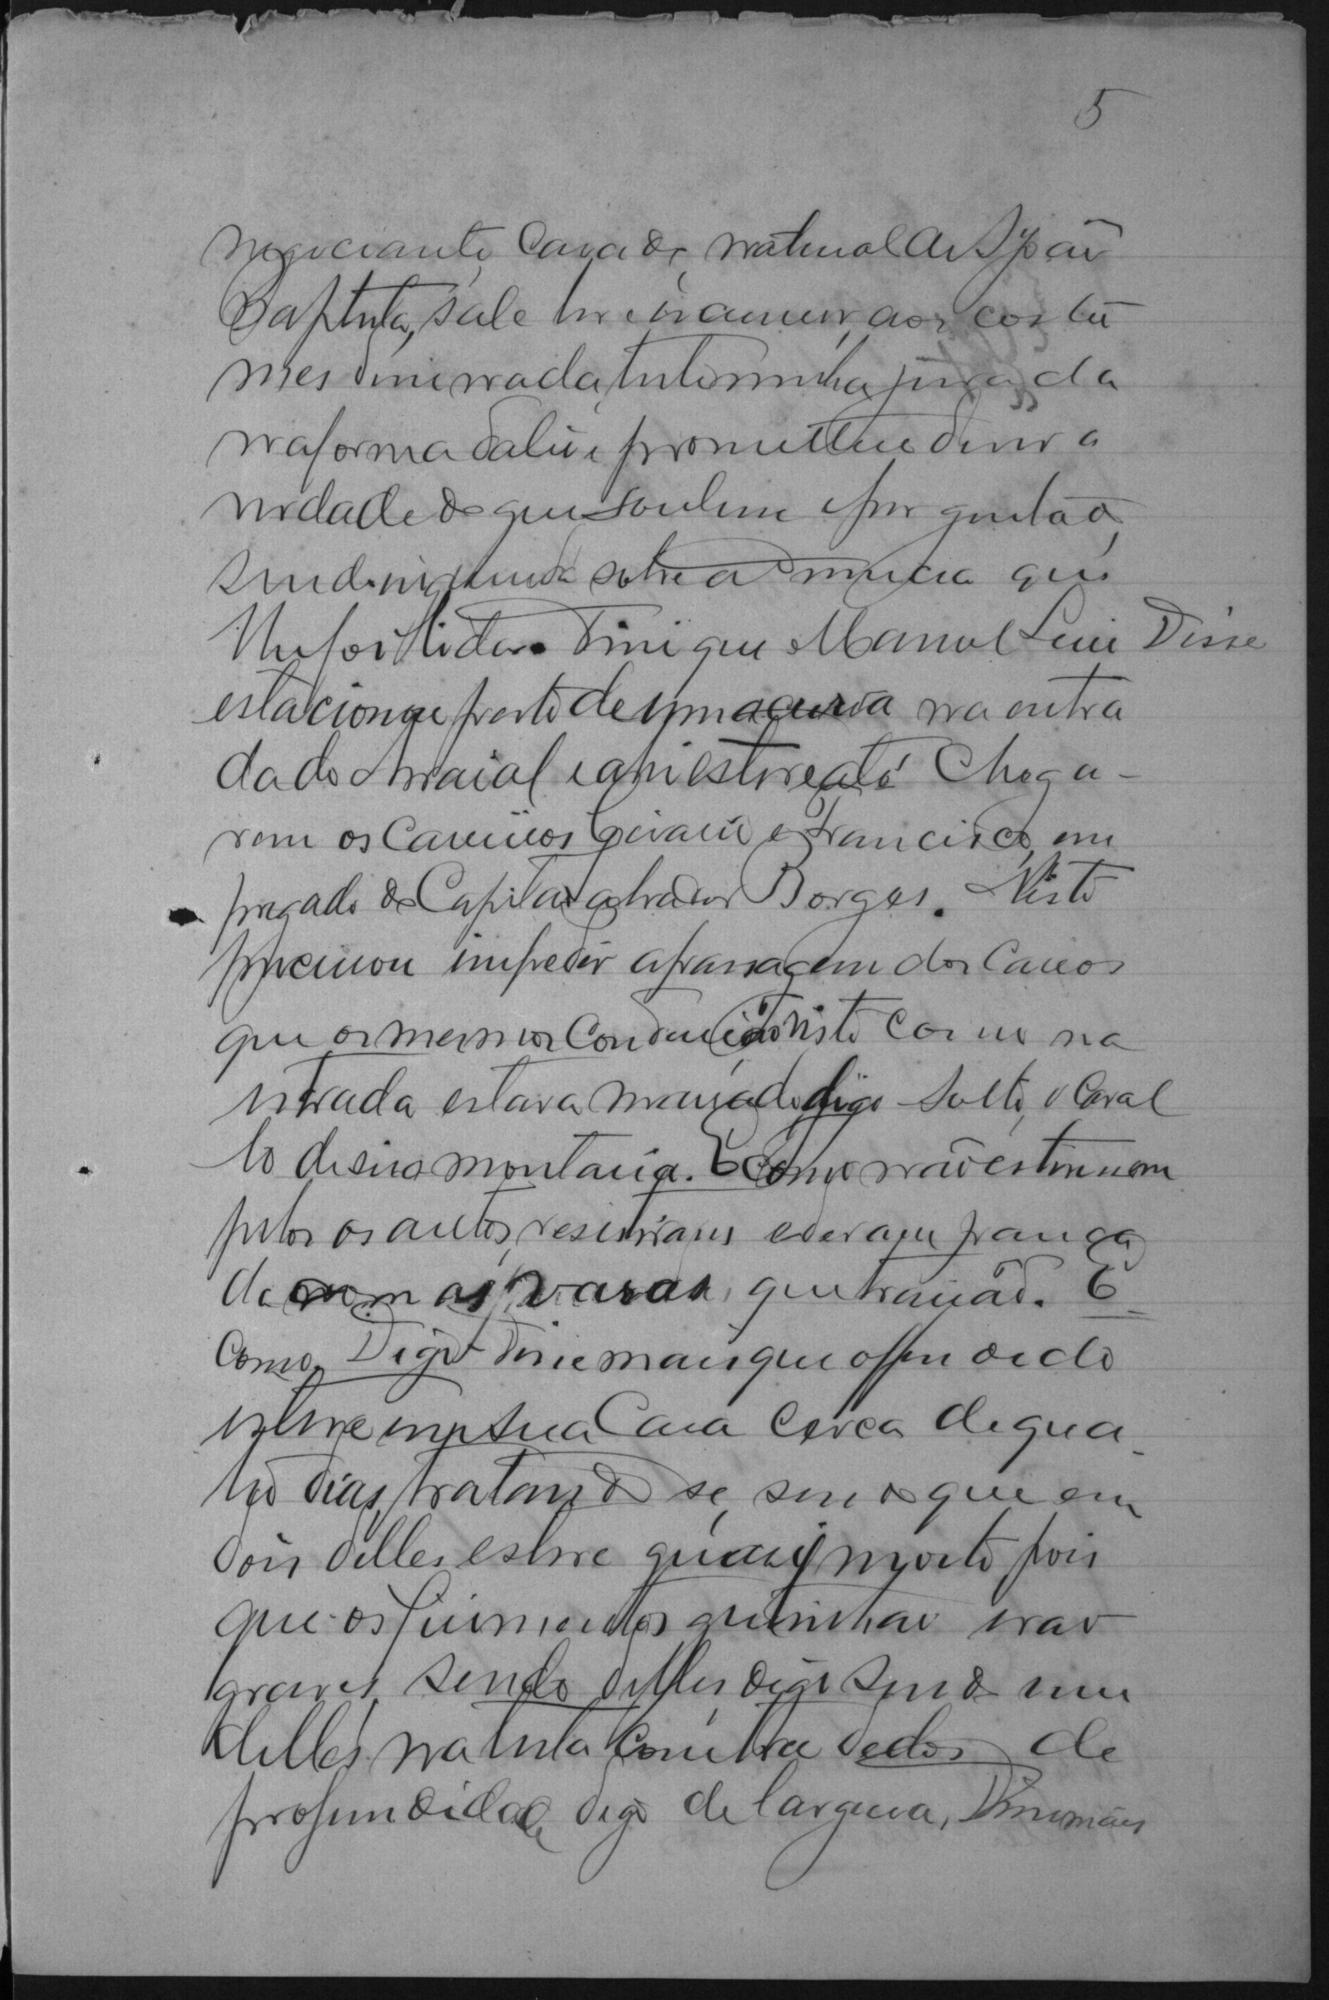 5
negociante, casado, natural de S. João
Baptista, sabe ler e escrever, aos costu
mes disse nada, testemunha jurada
na forma da lei e prometteu dizer a
verdade do que soubesse e perguntado
sendo inquirida sobre a denuncia que
lhe foi lida. Disse que Manoel Luiz Disse
estacionou perto de uma na entra
da do Arraial e ahi esteve até chega-
rem os Carreiros e Francisco, em
pregado do Capitão Borges. Nisto
procurou impedir a passagem dos Carros
que os mesmos conduzião visto como na
estrada estava digo solto, o Caval
lo de sua montaria. E como não estivessem
pelos os autos, resistiram e deram panca
da com as varas que trazião. E
como, Digo disse mais que offendido
esteve em sua Casa cerca de qua-
tro dias, tratando se, sendo que em
dois delles esteve quasi morto, pois
que os ferimentos que tinhão erão
graves, sendo delles, digo sendo um
delles na testa com tres dedos de
profundidade, digo de largura, Disse mais